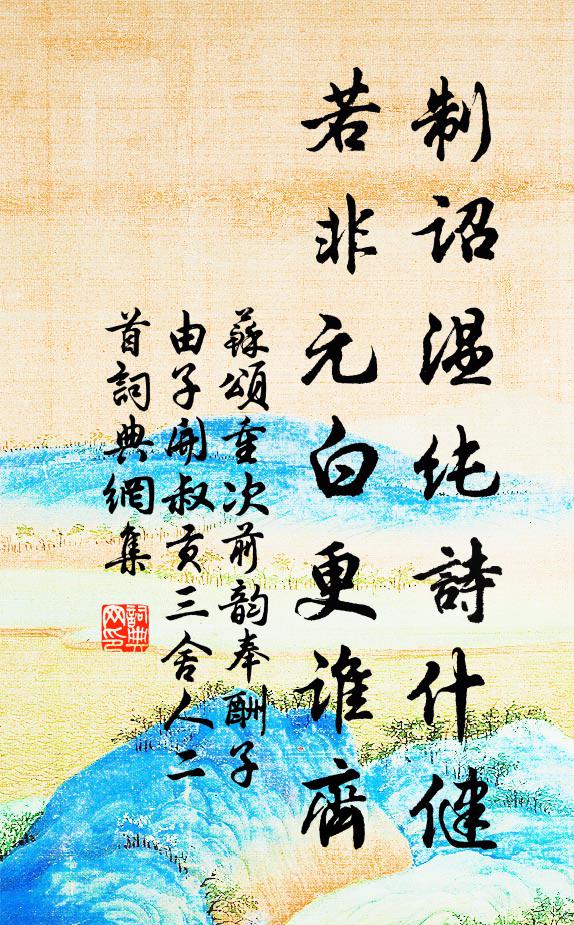 制詔温纯詩什健
若非元白更誰齊
蘇頌重次前韵奉酬子
由子開叔贡三舍人二
首詞典網集
詞典
网印